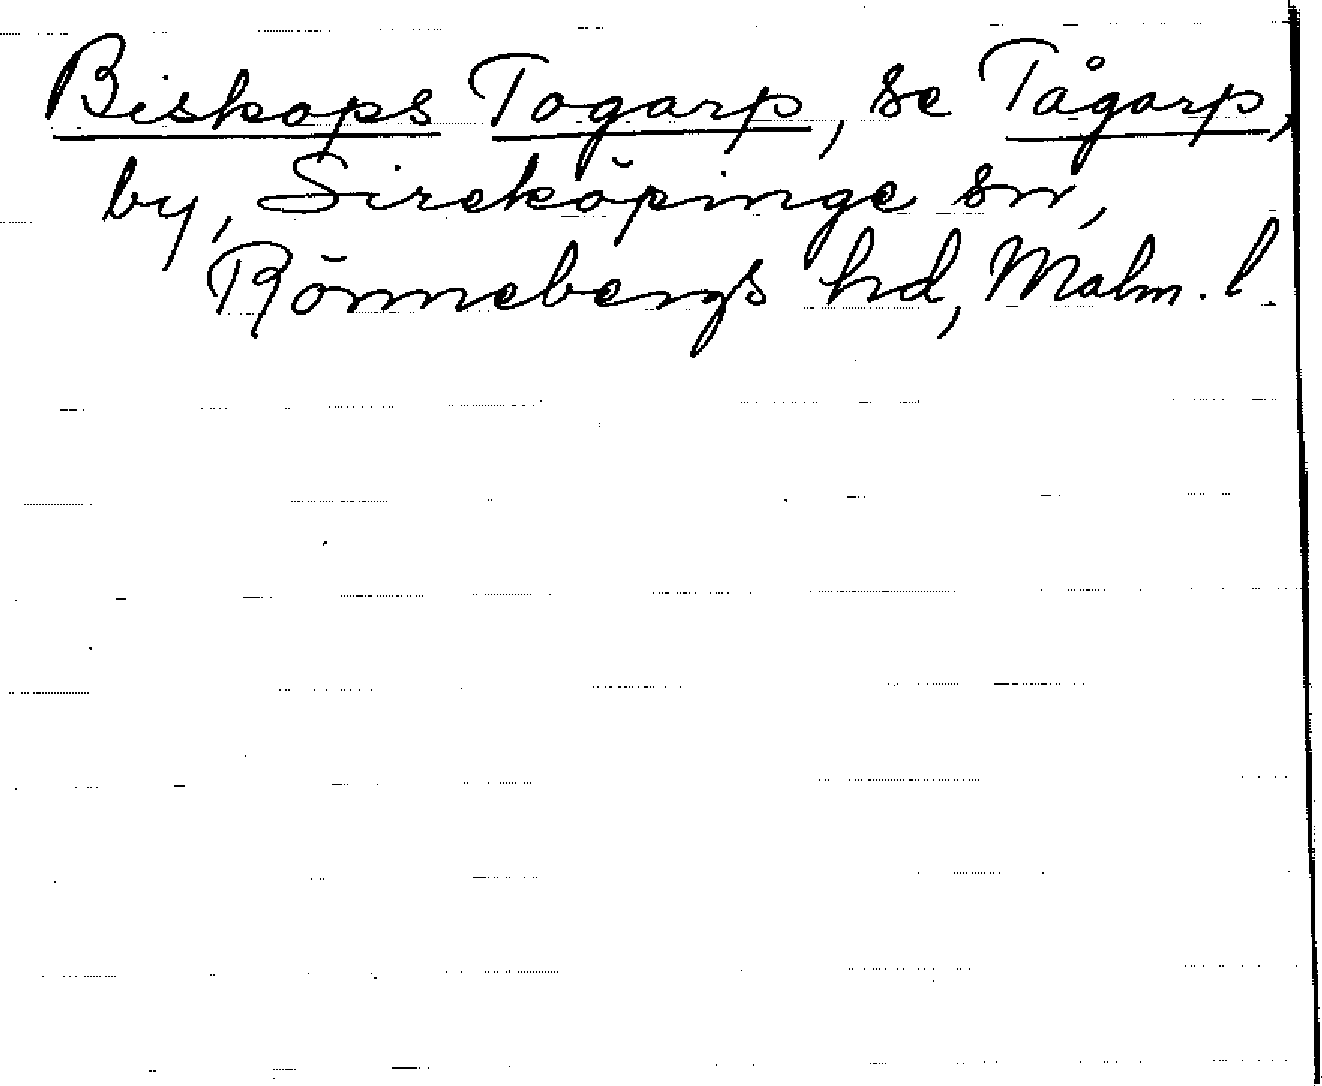 Biskops Togarp, se Tågarp,
by, Sireköpinge sn,
Rönnebergs hd, Malm. l.